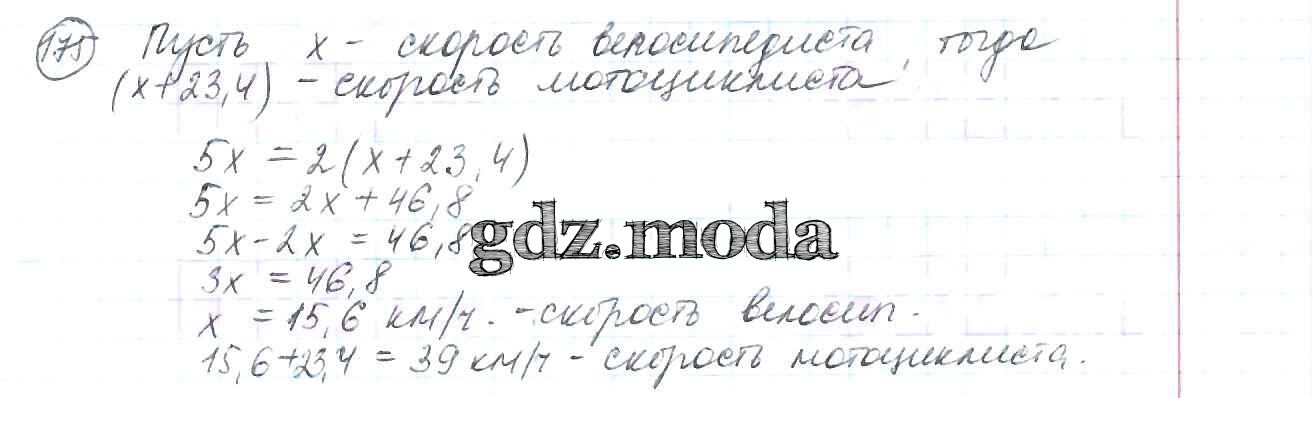 175 Пусть х - скорость велосипедиста, тогда
(х+23,4) - скорость мотоциклиста.
5х = 2(х+23,4)
5х = 2х + 46,8
5х-2х = 46,8
gdz.moda
3х = 46,8
х = 15,6 км/ч. - скорость велосип.
15,6+23,4 = 39 км/ч - скорость мотоциклиста.